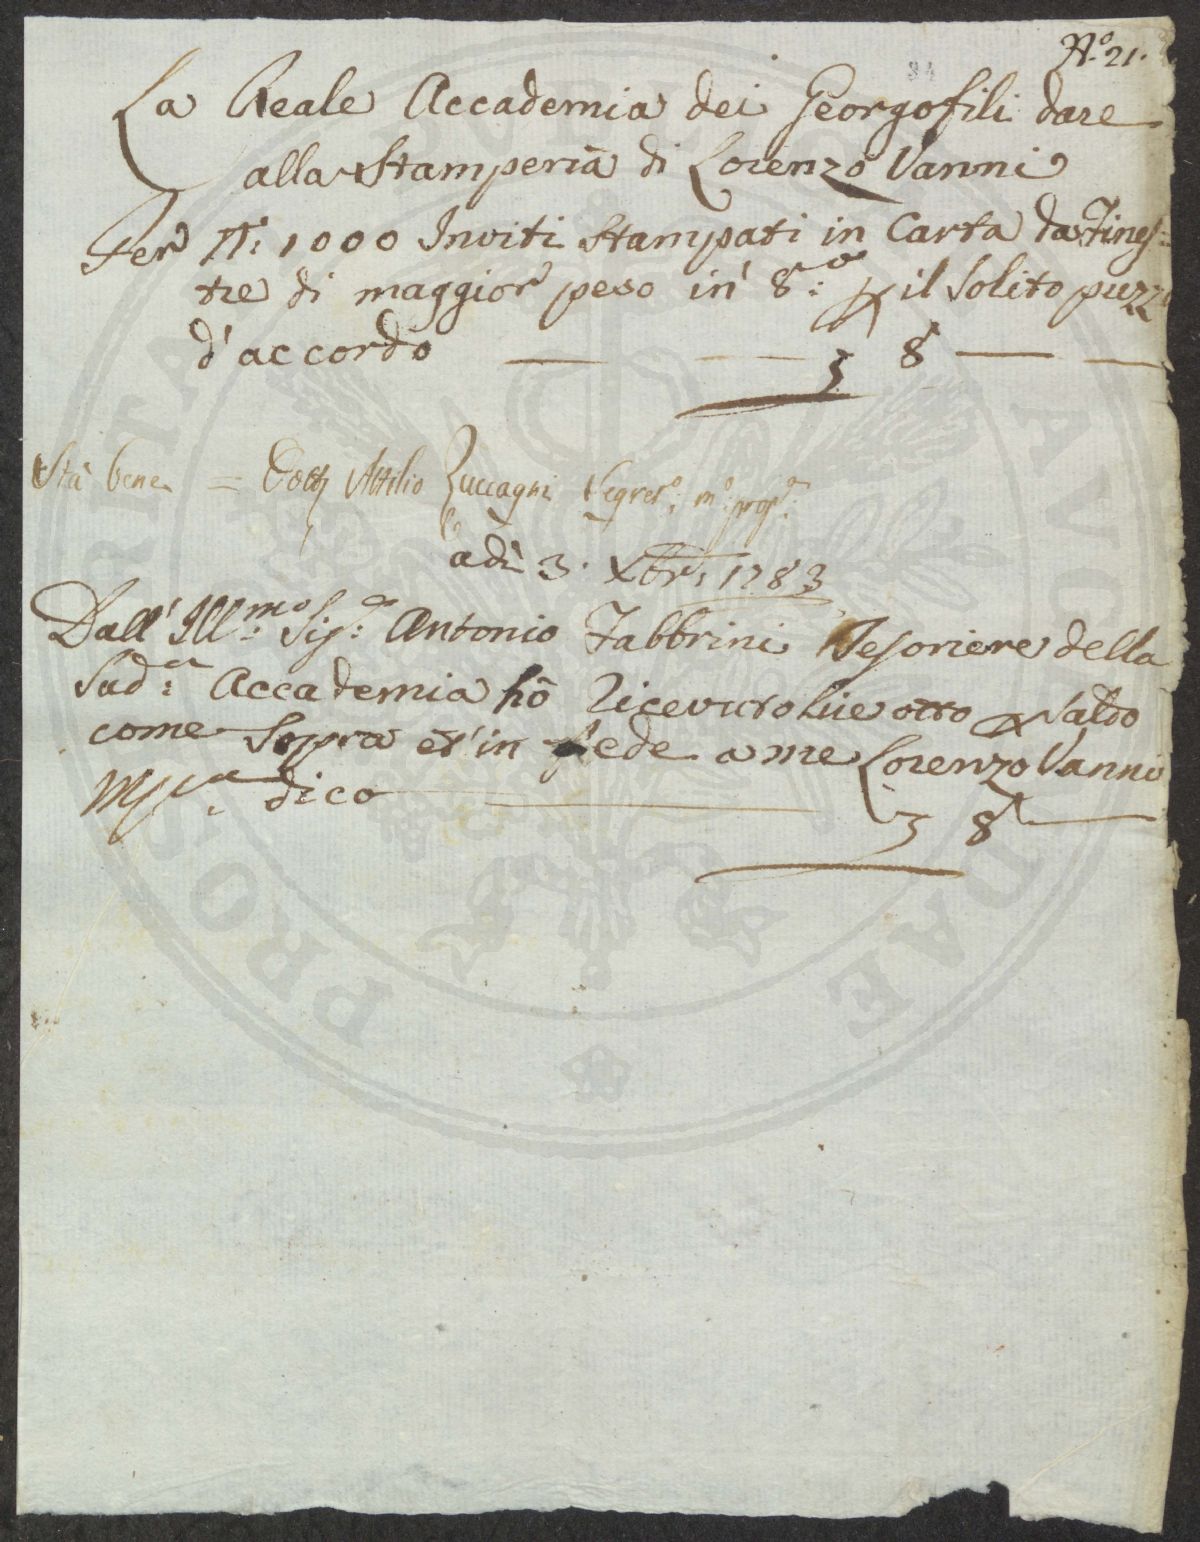 N.º 21.
84
La Reale Accademia dei Georgofili dare
alla Stamperia di Lorenzo Vanni
Per N: 1000 Inviti Stampati in Carta da Fines=
tre di maggior peso in 8.º p il Solito prezzo
d'accordo — — 8 — —
Stà bene = Dott Attilio Zuccagni Segret.º m.º prop.º
adì 3. Xbre 1783
Dall' Ill.mo Sig.re Antonio Fabbrini Tesoriere della
Sud.a Accademia hò Ricevuto lire otto p Saldo
come Sopra et in fede a me Lorenzo Vanni
Mp.a dico — 8 —
PROSPERITATI PUBLICAE AVGENDAE